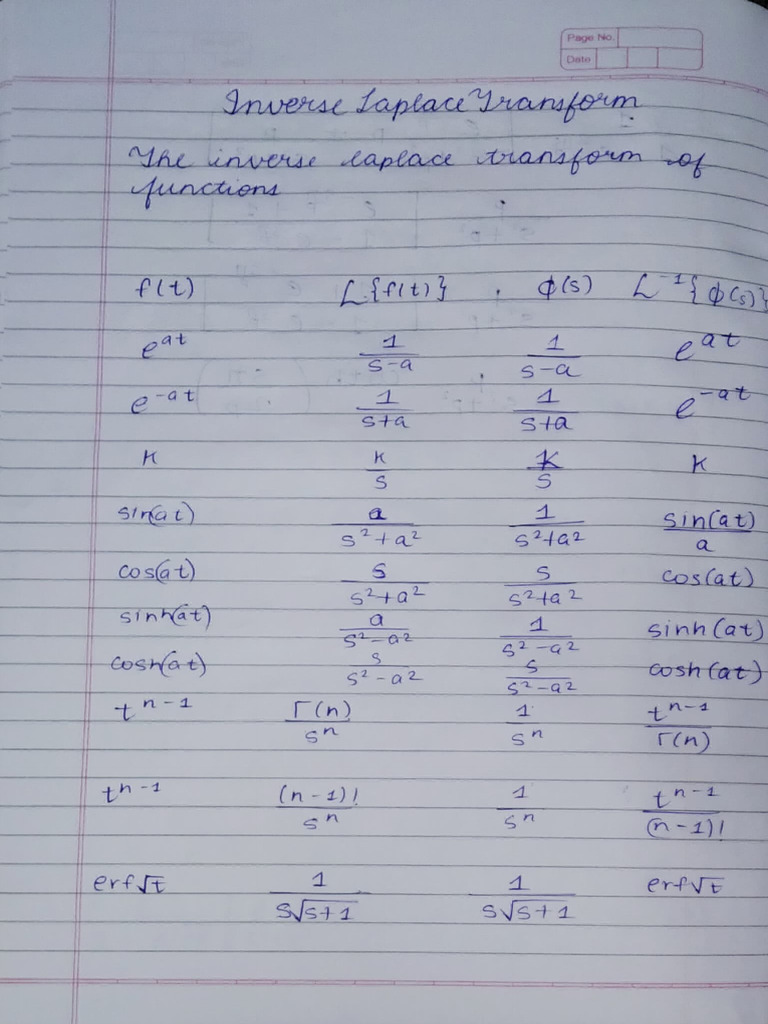 Page No.
Date
Inverse Laplace Transform
The inverse laplace transform of
functions
f(t) L{f(t)} φ(s) L⁻¹{φ(s)}
e^at 1/(s-a) 1/(s-a) e^at
e^-at 1/(s+a) 1/(s+a) e^-at
K K/s K/s K
sin(at) a/(s²+a²) 1/(s²+a²) sin(at)/a
cos(at) s/(s²+a²) s/(s²+a²) cos(at)
sinh(at) a/(s²-a²) 1/(s²-a²) sinh(at)
cosh(at) s/(s²-a²) s/(s²-a²) cosh(at)
t^n-1 Γ(n)/s^n 1/s^n t^n-1/Γ(n)
t^n-1 (n-1)!/s^n 1/s^n t^n-1/(n-1)!
erf√t 1/(s√(s+1)) 1/(s√(s+1)) erf√t